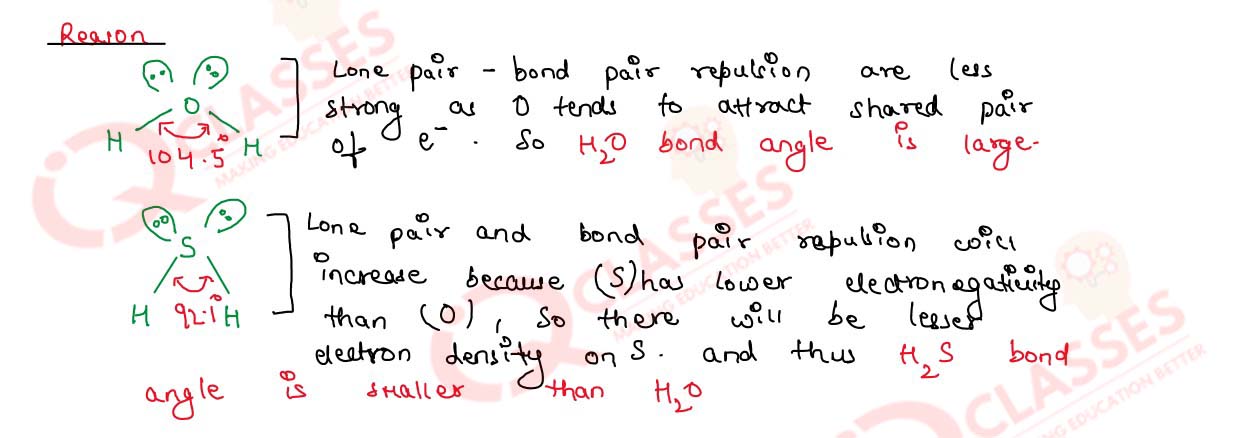 Reason
O
H H
104.5°
Lone pair - bond pair repulsion are less
strong as O tends to attract shared pair
of e⁻. So H₂O bond angle is large.
S
H H
92.1°
Lone pair and bond pair repulsion will
increase because (S) has lower electronegativity
than (O), So there will be lesser
electron density on S. and thus H₂S bond
angle is smaller than H₂O
IQ CLASSES
MAKING EDUCATION BETTER
IQ CLASSES
MAKING EDUCATION BETTER
CLASSES
MAKING EDUCATION BETTER